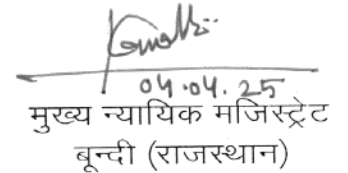 04.04.25
मुख्य न्यायिक मजिस्ट्रेट
बून्दी (राजस्थान)